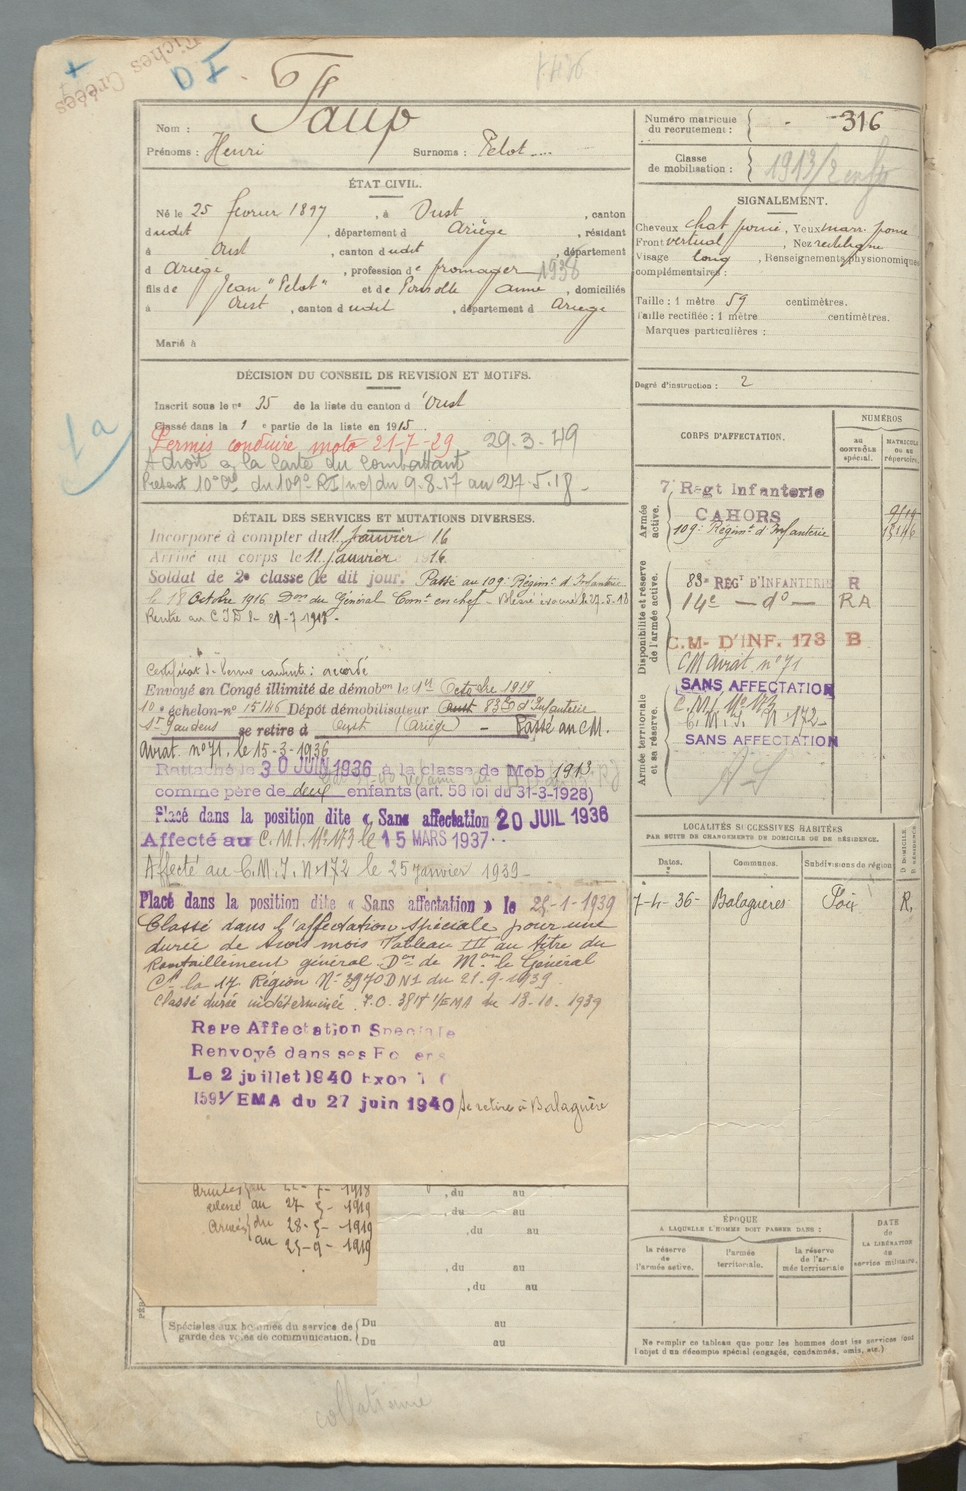 Fiches Créées
D I
7.436
Nom : Faup
Prénoms : Henri Surnoms : Pelot
Numéro matricule du recrutement : 316
Classe de mobilisation : 1913/2 enfts
ÉTAT CIVIL.
Né le 25 février 1897, à Oust, canton
dudit, département d Ariège, résidant
à Oust, canton dudit, département
d Ariège, profession de fromager 1938
fils de Jean "Pelot" et de Anne, domiciliés
à Oust, canton dudit, département d Ariège
Marié à
SIGNALEMENT.
Cheveux chat foncé, Yeux marr. foncé
Front vertical, Nez rectiligne
Visage long, Renseignements physionomiques
complémentaires :
Taille : 1 mètre 59 centimètres.
Taille rectifiée : 1 mètre centimètres.
Marques particulières :
Degré d'instruction : 2
DÉCISION DU CONSEIL DE REVISION ET MOTIFS.
Inscrit sous le n° 35 de la liste du canton d Oust
Classé dans la 1e partie de la liste en 1915.
1a
Permis conduire moto 21-7-29 29-3-49
A droit à la Carte du Combattant
Présent 10e du 109e RI du 9.8.17 au 27.5.18
DÉTAIL DES SERVICES ET MUTATIONS DIVERSES.
Incorporé à compter du 11 Janvier 16
Arrivé au corps le 11 janvier 1916
Soldat de 2e classe le dit jour. Passé au 109e Régimt d'Infanterie
le 18 Octobre 1916 Don du Général Comt en chef - Blessé évacué le 27-5-18
Rentré au C I D le 21-7-1918 -
Certificat de bonne conduite : accordé
Envoyé en Congé illimité de démobon le Octobre 1919
10e échelon-n° 15146 Dépôt démobilisateur 83e d'Infanterie
St Gaudens se retire à Oust (Ariège) - Passé au C M.
Aviat. n° 71, le 15-3-1936
Rattaché le 30 JUIN 1936 à la classe de Mob 1913
comme père de deux enfants (art. 58 loi du 31-3-1928)
Placé dans la position dite « Sans affectation 20 JUIL 1936
Affecté au C.M.I. N° 173 le 15 MARS 1937
Affecté au C.M.I. N° 172 le 25 janvier 1939 -
Placé dans la position dite « Sans affectation » le 25-1-1939
Classé dans l'affectation spéciale pour une
durée de trois mois Tableau III au titre du
Ravitaillement général Don de Mon le Général
Ct la 17e Région N° 3970 DN1 du 21-9-1939.
Classé durée indéterminée. 1/EMA du 18-10-1939
Raye Affectation Speciale
Renvoyé dans ses Foyers
Le 2 juillet 1940
1591/EMA du 27 juin 1940 Se retire à Balaguère
CORPS D'AFFECTATION.
NUMÉROS
au CONTRÔLE spécial.
MATRICULE ou au répertoire.
Armée active.
7e Regt Infanterie
CAHORS
109e Régimt d'Infanterie 15146
Disponibilité et réserve de l'armée active.
83e REGT D'INFANTERIE R
14e — do — RA
C.M- D'INF. 173 B
CM Aviat. n° 71
Armée territoriale et sa réserve.
SANS AFFECTATION
C.M.I. N° 173
C.M.I. N° 172 -
SANS AFFECTATION
LOCALITÉS SUCCESSIVES HABITÉES
PAR SUITE DE CHANGEMENTS DE DOMICILE OU DE RÉSIDENCE.
Dates. Communes. Subdivisions de région D DOMICILE R RÉSIDENCE
7-4-36- Balaguères Foix R.
1918
au 27-5-1919
du 28-5-1919
au 25-9-1919
, du au
, du au
, du au
, du au
, du au
Spéciales aux hommes du service de garde des voies de communication.
Du au
Du au
ÉPOQUE
A LAQUELLE L'HOMME DOIT PASSER DANS :
la réserve de l'armée active.
l'armée territoriale.
la réserve de l'armée territoriale
DATE de LA LIBÉRATION du service militaire.
Ne remplir ce tableau que pour les hommes dont les services font
l'objet d'un décompte spécial (engagés, condamnés, omis, etc.)
collationné